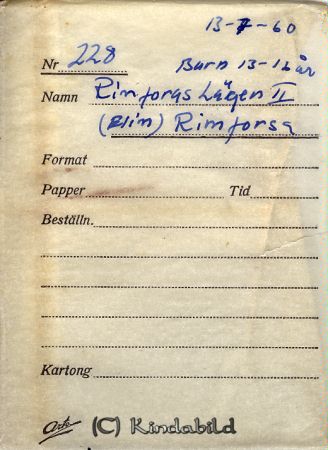 13-7-60
Nr 228 Barn 13-16 år
Namn Rimforgs Lägen II
(Elim) Rimforsa
Format
Papper Tid
Beställn.
Kartong
Arto (C) Kindabild